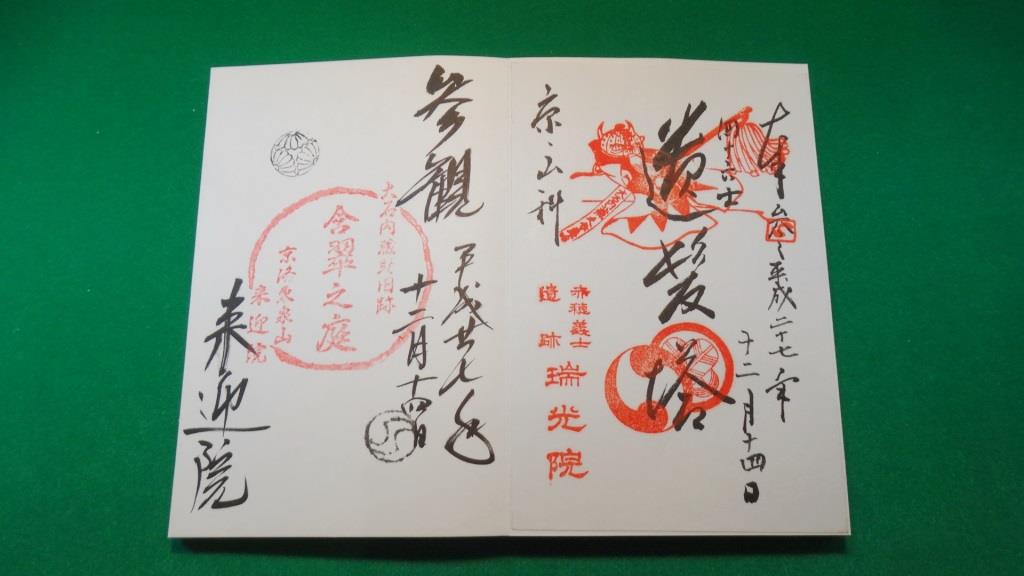 平成二十七年
十二月十四日
四十六士
遺髪塔
京 山科
赤穂義士
遺跡
瑞光院
参観
平成廿七年
十二月十四日
大石内蔵助旧跡
含翠之庭
京洛東泉山
来迎院
来迎院